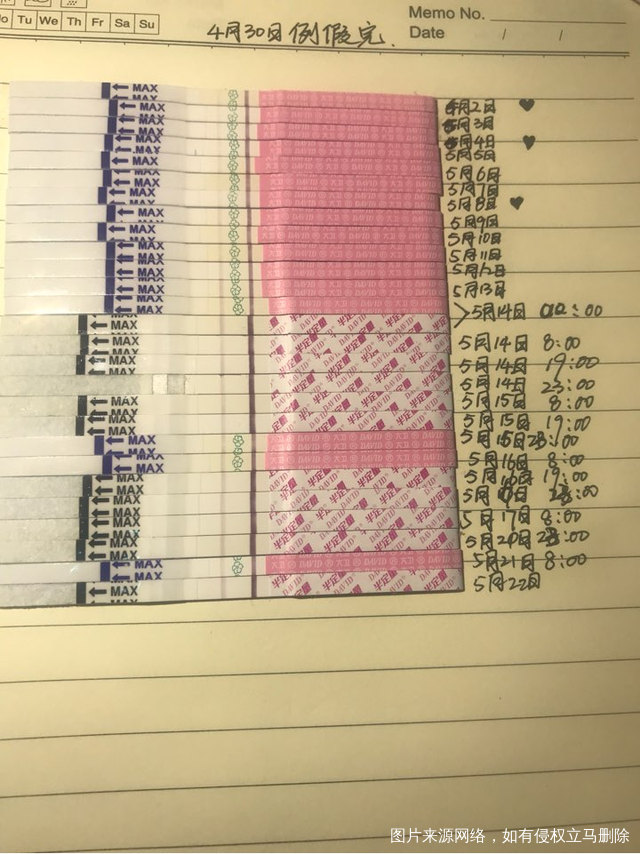 Tu We Th Fr Sa Su
Memo No.
Date / /
4月30日例假完.
MAX
MAX
MAX
MAX
MAX
MAX
MAX
MAX
MAX
MAX
MAX
MAX
MAX
MAX
MAX
MAX
MAX
MAX
MAX
MAX
MAX
MAX
MAX
MAX
MAX
MAX
DAVID 大卫
DAVID 半定量
5月2日 ♥
5月3日
5月4日 ♥
5月5日
5月6日
5月7日
5月8日 ♥
5月9日
5月10日
5月11日
5月12日
5月13日
>5月14日 00:00
5月14日 8:00
5月14日 19:00
5月14日 23:00
5月15日 8:00
5月15日 19:00
5月15日 23:00
5月16日 8:00
5月16日 19:00
5月17日 8:00
5月20日 23:00
5月21日 8:00
5月22日
图片来源网络，如有侵权立马删除